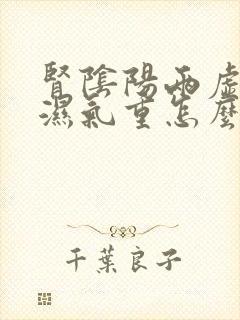 腎陰陽兩虛
濕氣重怎麼
千葉良子